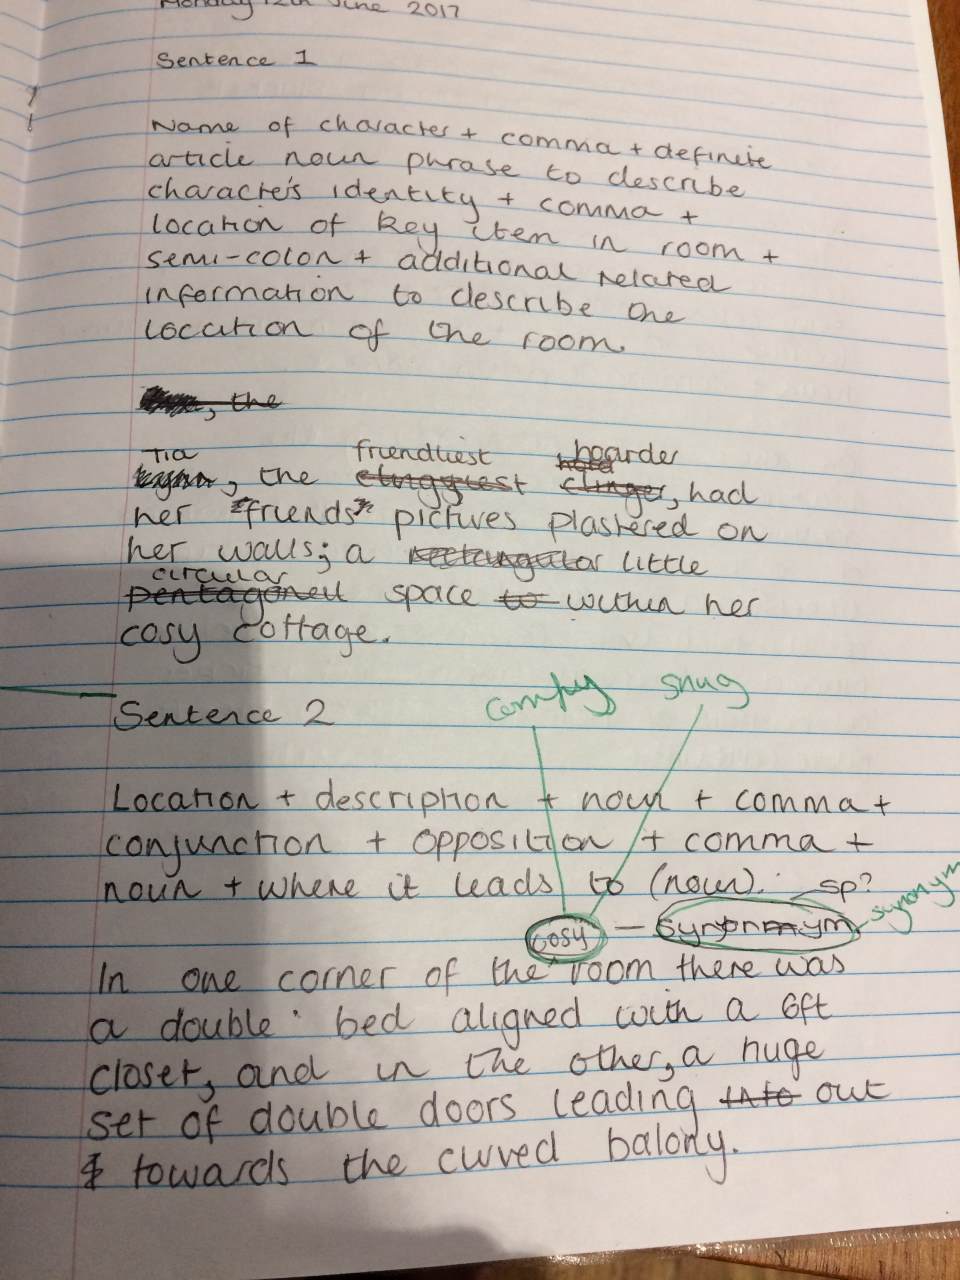 Monday 12th June 2017
Sentence 1
Name of character + comma + definite
article noun phrase to describe
character's identity + comma +
location of key item in room +
semi-colon + additional related
information to describe the
location of the room.
, the
Tia friendliest hoarder
, the clinggiest clinger, had
her "friends" pictures plastered on
her walls; a rectangular little
circular
pentagonal space to within her
cosy cottage.
comfy snug
Sentence 2
Location + description + noun + comma +
conjunction + opposition + comma +
noun + where it leads to (noun).
sp?
cosy - synonmym synonym
In one corner of the room there was
a double bed aligned with a 6ft
closet, and in the other, a huge
set of double doors leading into out
towards the curved balony.